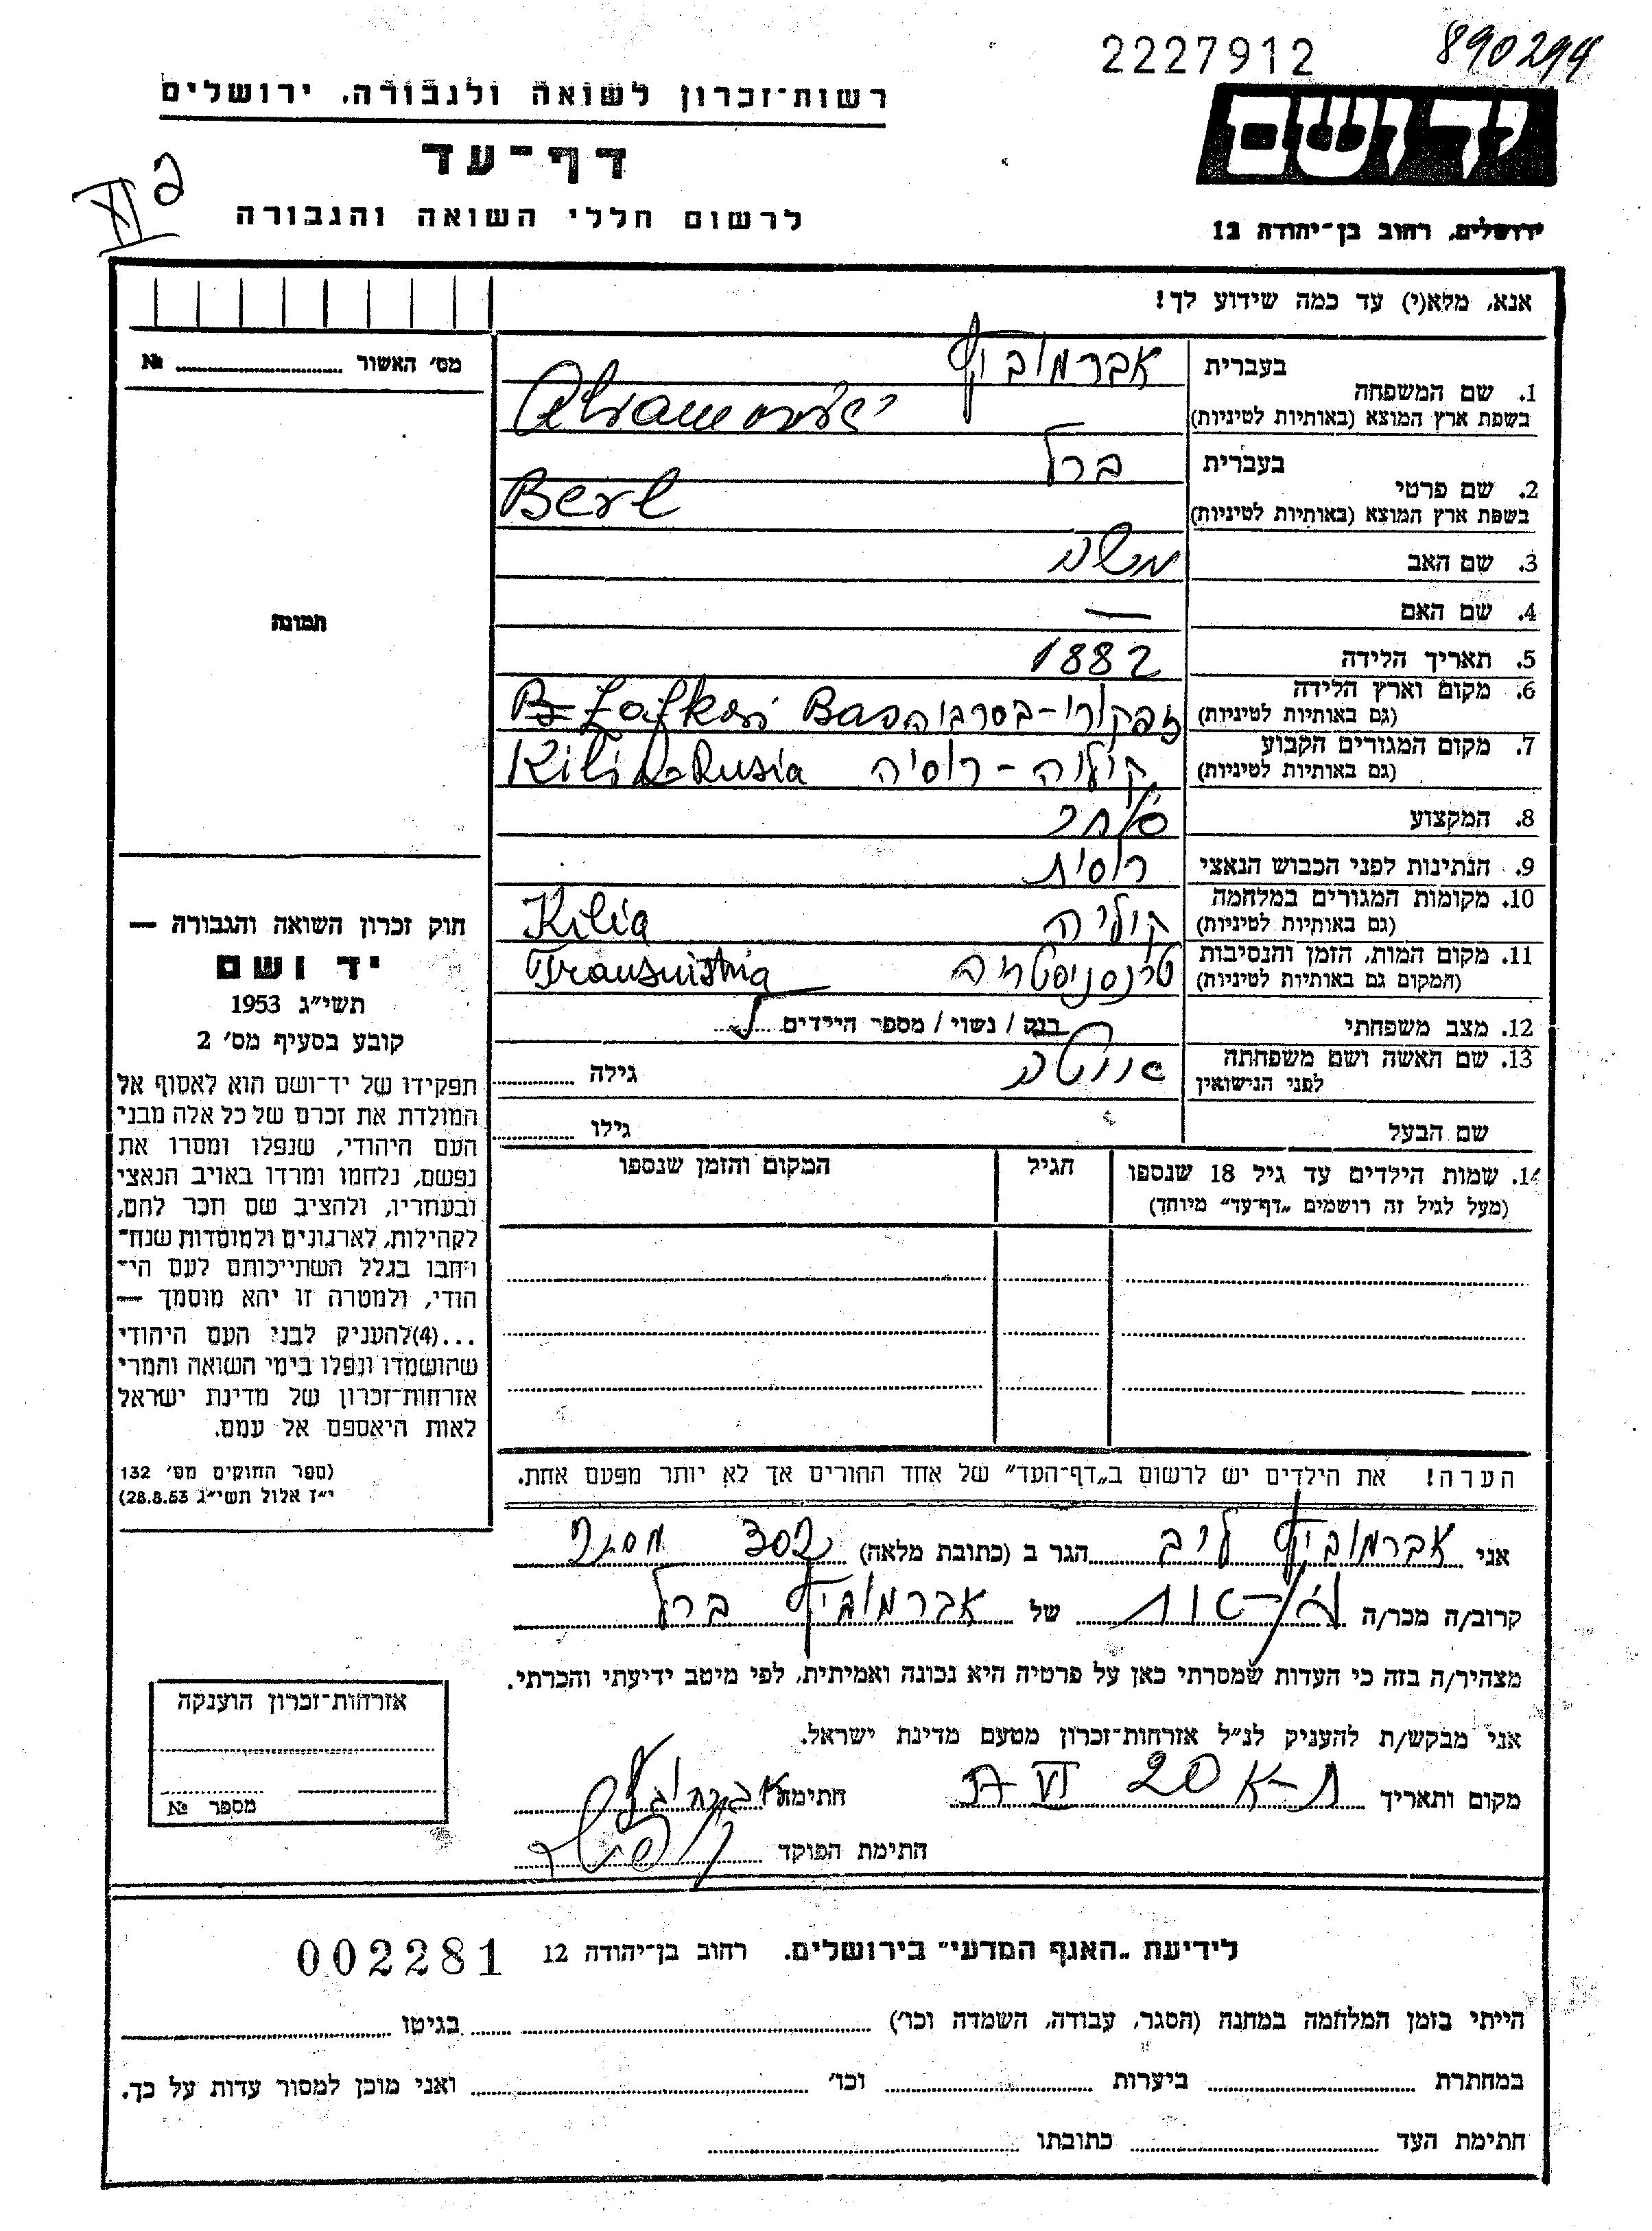 2227912 890294
רשות־זכרון לשואה ולגבורה, ירושלים
יד ושם
דף־עד
לרשום חללי השואה והגבורה
ירושלים, רחוב בן־יהודה 12
אנא, מלא(י) עד כמה שידוע לך!
מס׳ האשור № 
בעברית אברמוביץ
1. שם המשפחה
בשפת ארץ המוצא (באותיות לטיניות) Abramovici
בעברית ברל
2. שם פרטי
בשפת ארץ המוצא (באותיות לטיניות) Berl
3. שם האב משה
4. שם האם —
תמונה
5. תאריך הלידה 1882
6. מקום וארץ הלידה
(גם באותיות לטיניות) זפקורי-בסרביה Bas
7. מקום המגורים הקבוע
(גם באותיות לטיניות) קיליה - רוסיה Kilia-Rusia
8. המקצוע סוחר
9. הנתינות לפני הכבוש הנאצי רוסית
10. מקומות המגורים במלחמה
(גם באותיות לטיניות) קיליה Kilia
11. מקום המות, הזמן והנסיבות
(המקום גם באותיות לטיניות) טרנסניסטריה Transnistria
12. מצב משפחתי רווק / נשוי / מספר הילדים
13. שם האשה ושם משפחתה
לפני הנישואין גילה
שם הבעל גילו
14. שמות הילדים עד גיל 18 שנספו הגיל המקום והזמן שנספו
(מעל לגיל זה רושמים „דף־עד” מיוחד)
חוק זכרון השואה והגבורה —
יד ושם
תשי״ג 1953
קובע בסעיף מס׳ 2
תפקידו של יד־ושם הוא לאסוף אל
המולדת את זכרם של כל אלה מבני
העם היהודי, שנפלו ומסרו את
נפשם, נלחמו ומרדו באויב הנאצי
ובעוזריו, ולהציב שם וזכר להם,
לקהילות, לארגונים ולמוסדות שנח־
רבו בגלל השתייכותם לעם הי־
הודי, ולמטרה זו יהא מוסמך —
...(4) להעניק לבני העם היהודי
שהושמדו ונפלו בימי השואה והמרי
אזרחות־זכרון של מדינת ישראל
לאות היאספם אל עמם.
(ספר החוקים מס׳ 132
י״ז אלול תשי״ג 28.8.53)
הערה! את הילדים יש לרשום ב„דף־העד” של אחד ההורים אך לא יותר מפעם אחת.
אני אברמוביץ לייב הגר ב (כתובת מלאה)
קרוב/ה מכר/ה של אברמוביץ ברל
מצהיר/ה בזה כי העדות שמסרתי כאן על פרטיה היא נכונה ואמיתית, לפי מיטב ידיעתי והכרתי.
אני מבקש/ת להעניק לנ״ל אזרחות־זכרון מטעם מדינת ישראל.
מקום ותאריך ת-א 20 VI חתימה
חתימת הפוקד
אזרחות־זכרון הוענקה
מספר №
לידיעת „האגף המדעי” בירושלים. רחוב בן־יהודה 12 002281
הייתי בזמן המלחמה במחנה (הסגר, עבודה, השמדה וכו׳) בגיטו
במחתרת ביערות וכו׳ ואני מוכן למסור עדות על כך.
חתימת העד כתובתו